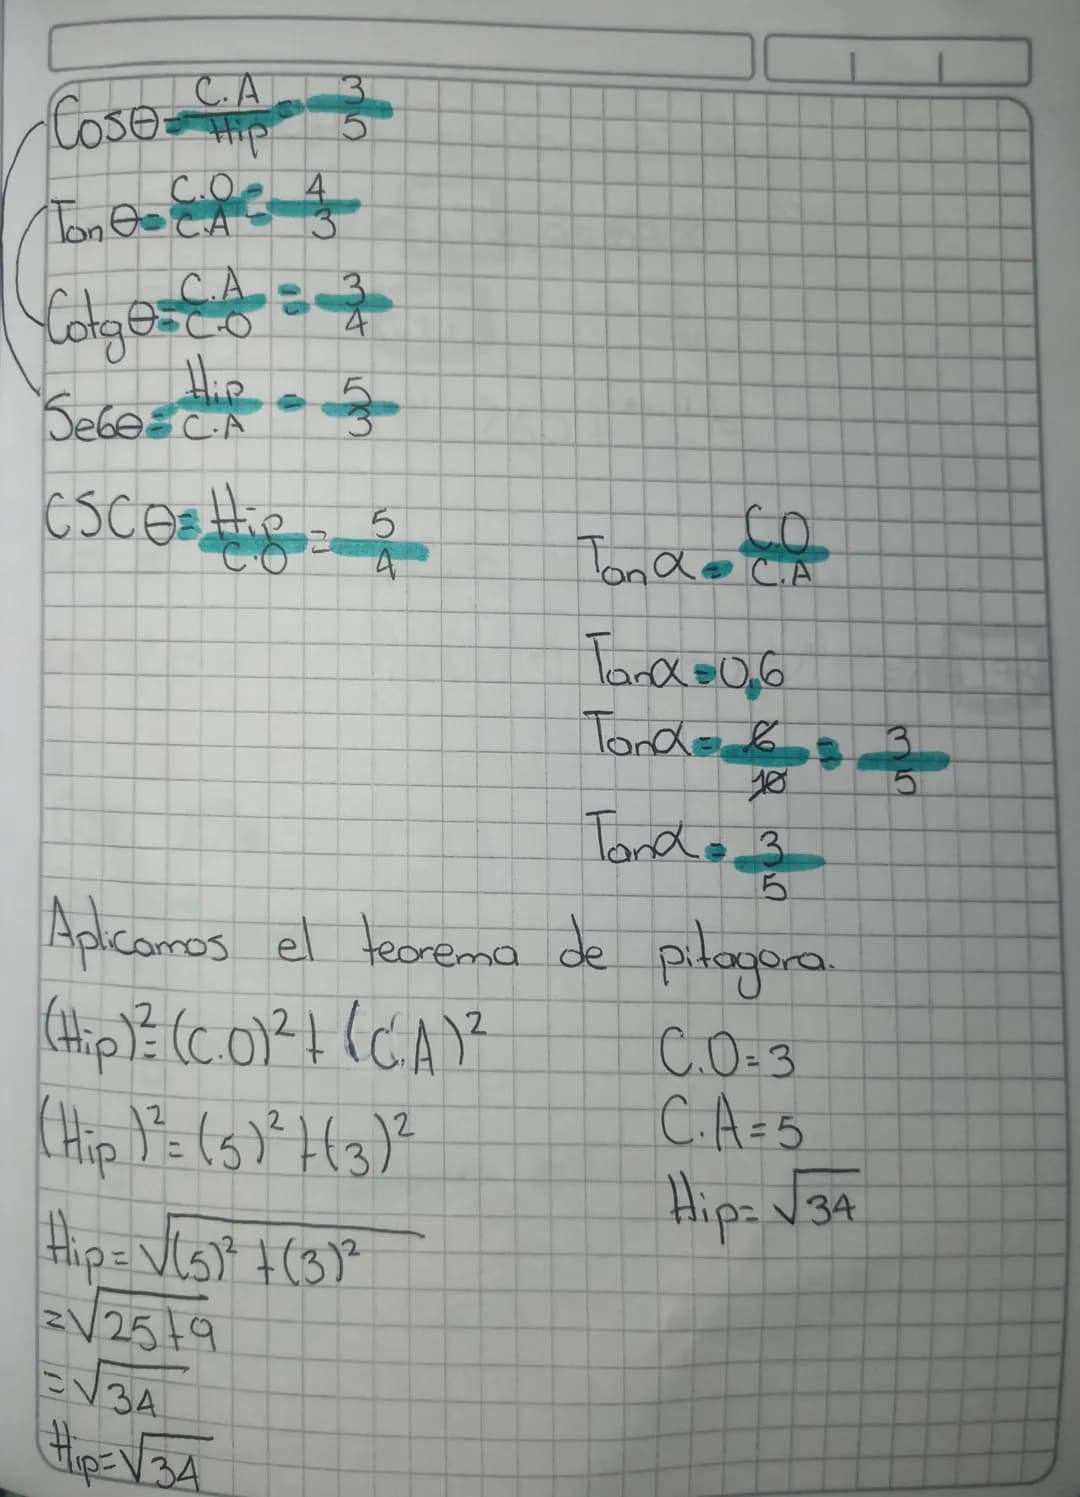 Cosθ = C.A / Hip = 3/5
Tanθ = C.O / C.A = 4/3
Cotgθ = C.A / C.O = 3/4
Secθ = Hip / C.A = 5/3
CSCθ = Hip / C.O = 5/4
Tanα = C.O / C.A
Tanα = 0,6
Tanα = 6/10 = 3/5
Tanα = 3/5
Aplicamos el teorema de pitagora.
(Hip)² = (C.O)² + (C.A)²
(Hip)² = (5)² + (3)²
Hip = √(5)² + (3)²
= √25+9
= √34
Hip = √34
C.O = 3
C.A = 5
Hip = √34